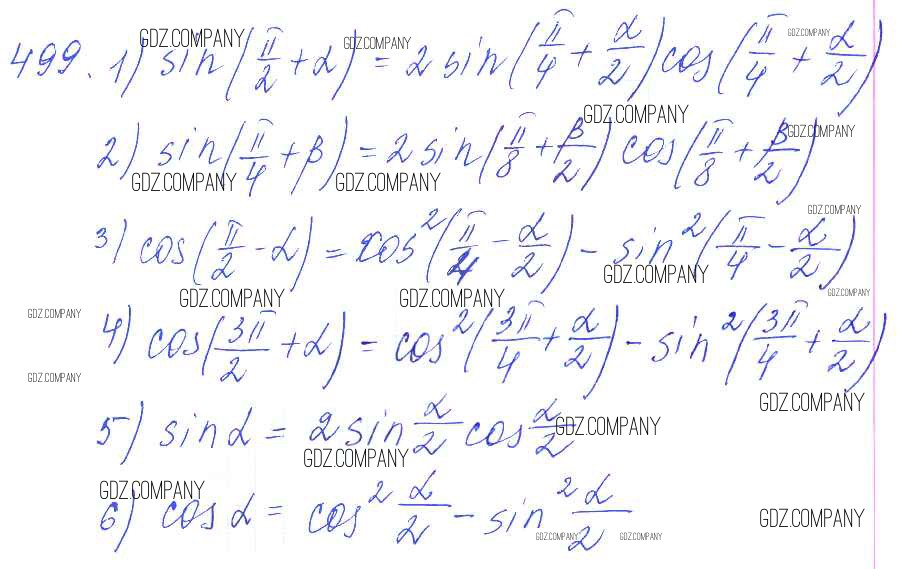 499. 1) sin(π/2 + α) = 2 sin(π/4 + α/2) cos(π/4 + α/2)
2) sin(π/4 + β) = 2 sin(π/8 + β/2) cos(π/8 + β/2)
3) cos(π/2 - α) = cos²(π/4 - α/2) - sin²(π/4 - α/2)
4) cos(3π/2 + α) = cos²(3π/4 + α/2) - sin²(3π/4 + α/2)
5) sin α = 2 sin α/2 cos α/2
6) cos α = cos² α/2 - sin² α/2
GDZ.COMPANY GDZ.COMPANY GDZ.COMPANY
GDZ.COMPANY GDZ.COMPANY
GDZ.COMPANY GDZ.COMPANY
GDZ.COMPANY
GDZ.COMPANY
GDZ.COMPANY GDZ.COMPANY GDZ.COMPANY
GDZ.COMPANY
GDZ.COMPANY
GDZ.COMPANY
GDZ.COMPANY
GDZ.COMPANY
GDZ.COMPANY
GDZ.COMPANY
GDZ.COMPANY GDZ.COMPANY GDZ.COMPANY